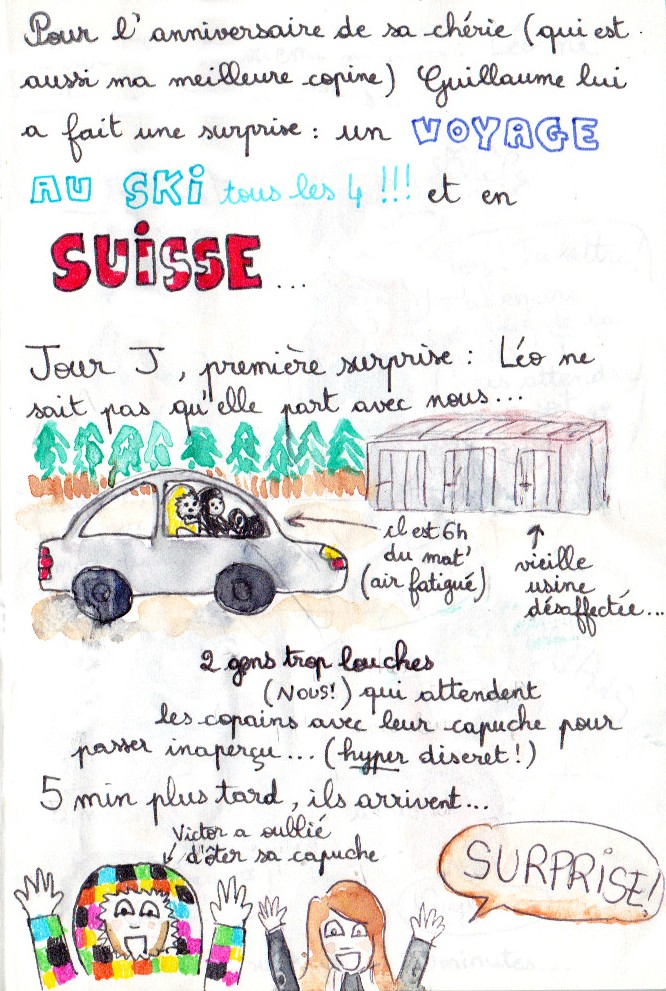 Pour l'anniversaire de sa chérie (qui est
aussi ma meilleure copine) Guillaume lui
a fait une surprise : un VOYAGE
AU SKI tous les 4 !!! et en
SUISSE...
Jour J, première surprise : Léo ne
sait pas qu'elle part avec nous...
il est 6h
du mat'
(air fatigué)
vieille
usine
désaffectée...
2 gens trop louches
(NOUS!) qui attendent
les copains avec leur capuche pour
passer inaperçu... (hyper discret!)
5 min plus tard, ils arrivent...
Victor a oublié
d'ôter sa capuche
SURPRISE!
minutes...